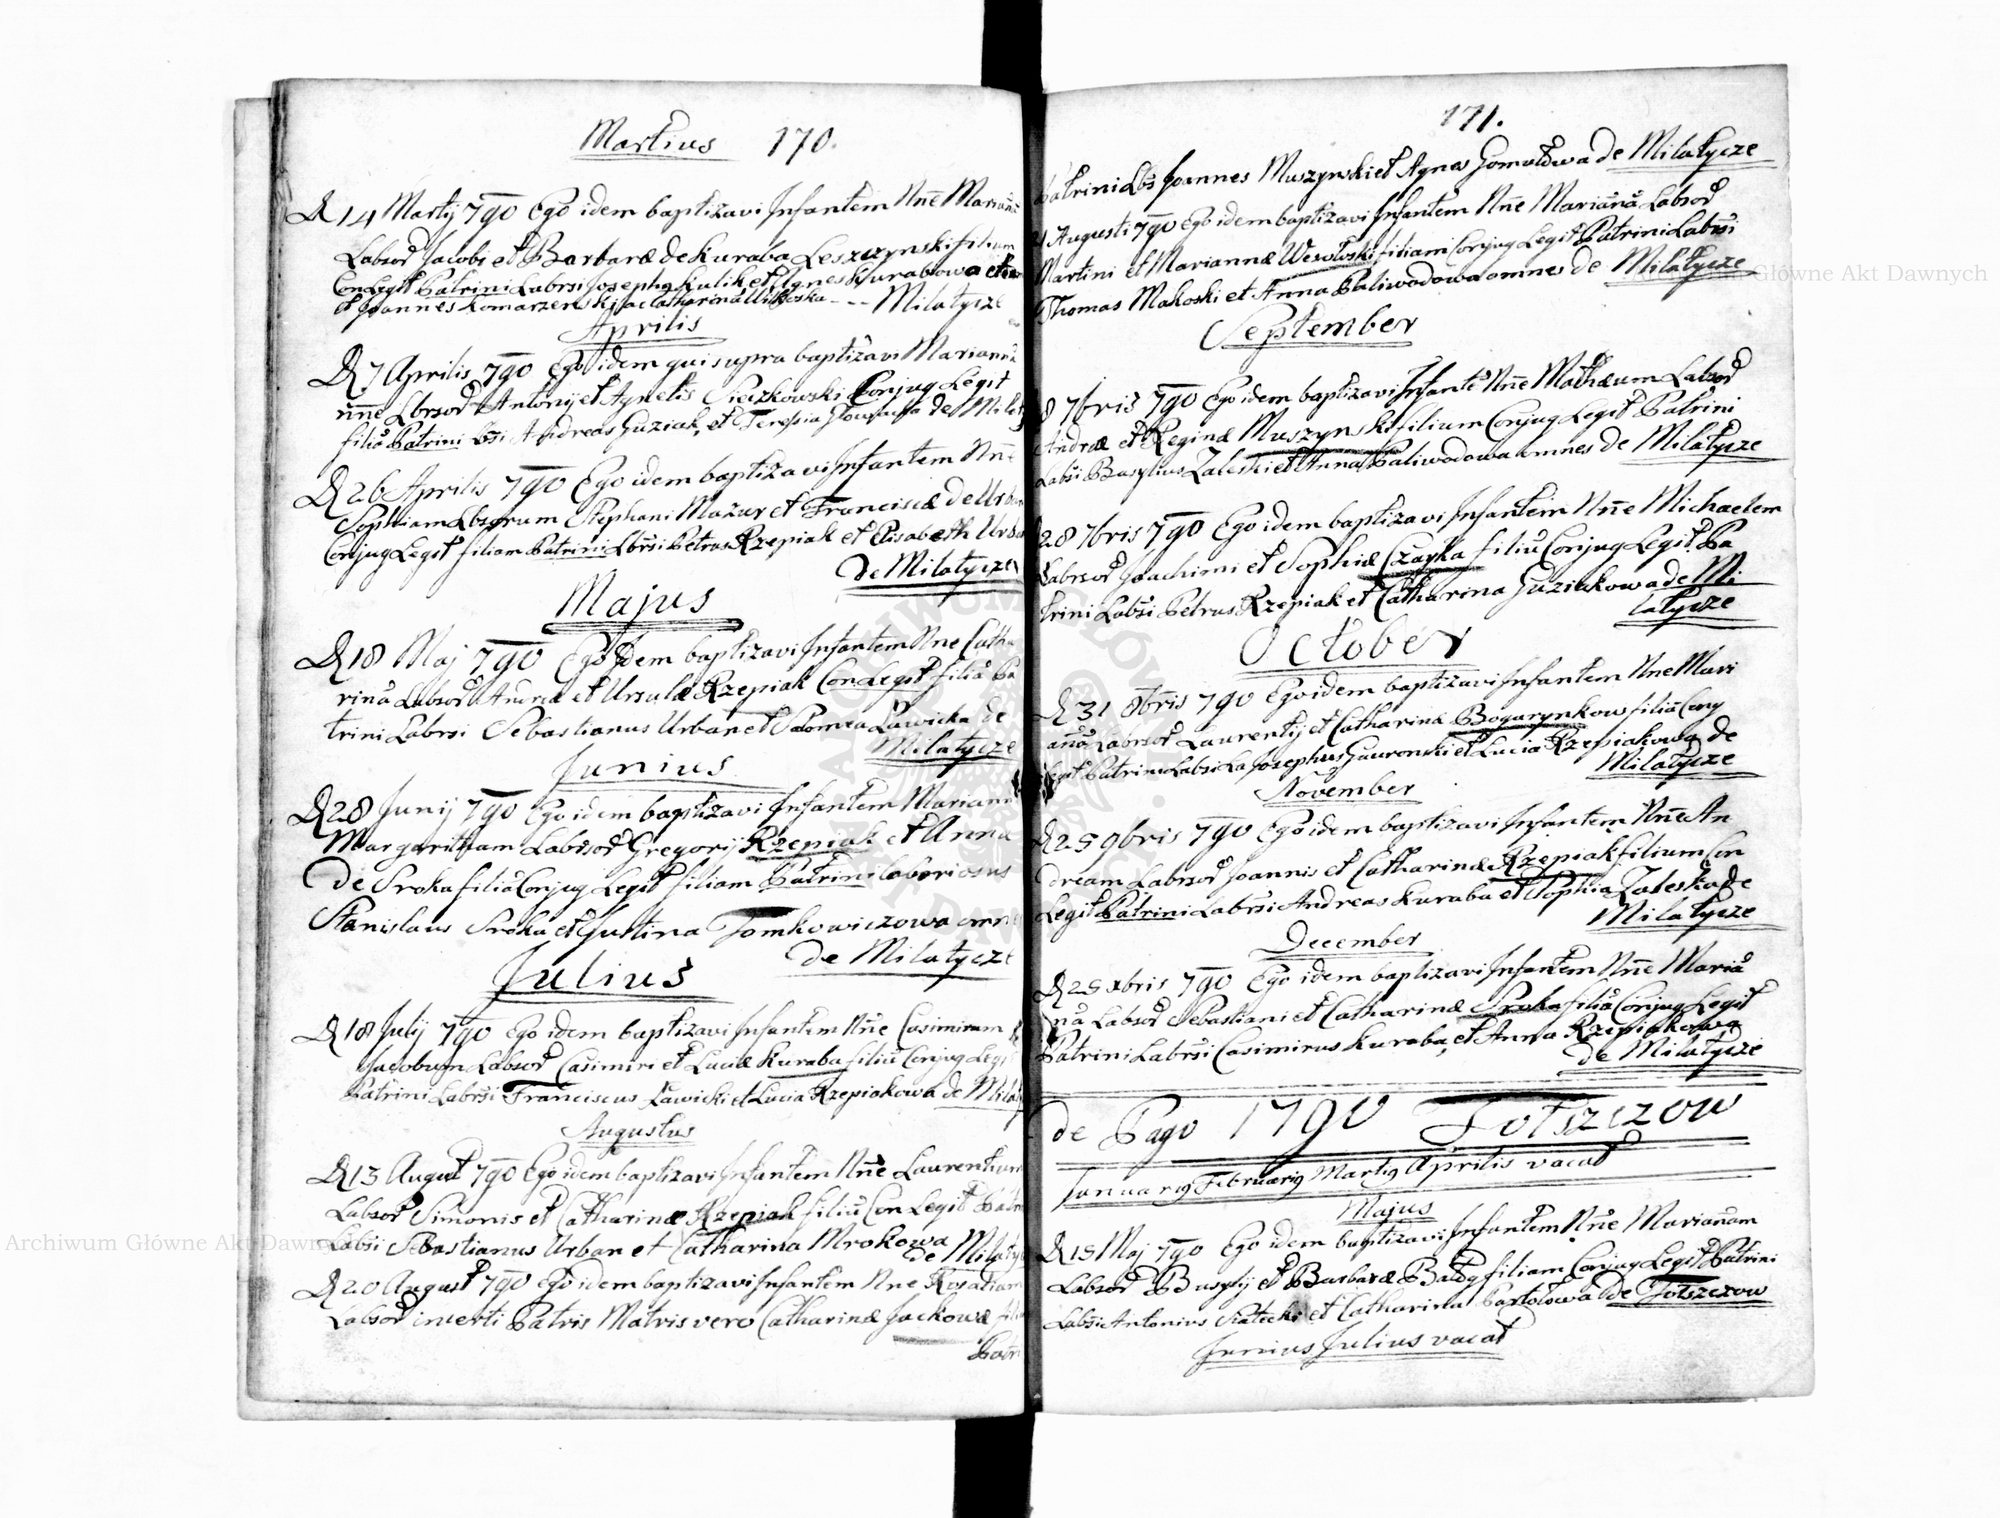 Martius 170.
D 14 Martij 790 Ego idem baptizavi Infantem Nne
Labror Jacobi et Barbaræ de Kuraba Leszczynski filium
Con Legit Patrini Labrsi Josephg Kulik et Agnes Kurabowa
et Joannes Komarzenski ac Catharina --- Milatycze
Aprilis
D 7 Aprilis 790 Ego idem qui supra baptizavi
nne Lbrsor Antonij et Agnetis Sieczkowski Conjug Legit
filia Patrini Lbsi Andreas Guziak, et Teressia de
D 26 Aprilis 790 Ego idem baptizavi Infantem Nne
Sophiam Lbsorum Stephani Mazur et Franciscæ de
Conjug Legit filiam Patrini Lbrsi Petrus Rzepiak et Elisabeth
de Milatycze
Majus
D 18 Maj 790 Ego Idem baptizavi Infantem Nne Catha
rina Labsor Andreæ et Ursulæ Rzepiak Con Legit filia Pa
trini Labrsi Sebastianus Urban et Salomea Lawicka de
Milatycze
Junius
D 28 Junij 790 Ego idem baptizavi Infantem
Margaritham Labrsor Gregorij Rzepiak et Anna
De Sroka filia Conjug Legit filiam Patrini laboriosus
Stanislaus Sroka et Justina Tomkowiczowa
de Milatycze
Julius
D 18 Julij 790 Ego idem baptizavi Infantem Nne Casimirum
Jacobum Labsor Casimiri et Luciæ Kuraba filiu Conjug
Patrini Labrsi Franciscus Lawicki et Lucia Rzepiakowa de
Augustus
D 13 August 790 Ego idem baptizavi Infantem Nne
Labsor Simonis et Catharinæ Rzepiak filiu Con Legit
Labsi Sebastianus Urban et Catharina Mrokowa
de
D 20 August 790 Ego idem baptizavi Infantem Nne
Labsor incerti Patris Matris vero Catharinæ Jackowæ
171.
Patrini Lbs Joannes Muszynski et Agnes de Milatycze
Augusti 790 Ego idem baptizavi Infantem Nne Mariana Labsor
Martini et Mariannæ Wesołoski filiam Conjug Legit Patrini Labrsi
Thomas Makoski et Anna Paliwodowa omnes de Milatycze
September
8 7bris 790 Ego idem baptizavi Infante Nne Mathæum Labsor
Andreæ et Reginæ Muszynski filium Conjug Legit Patrini
Labsi Basylius Zaleski et Anna Paliwodowa omnes de Milatycze
28 7bris 790 Ego idem baptizavi Infantem Nne Michaelem
Labrsor Joachimi et Sophiæ Czayka filiu Conjug Legit Pa
trini Labsi Petrus Rzepiak et Catharina Guziakowa de Mi
latycze
October
D 31 8bris 790 Ego idem baptizavi Infantem Nne Mari
ana Labrsor Laurentij et Catharinæ filia Conj
Legit Patrini Labsi Josephus Gawronski et Lucia Rzepiakowa de
Milatycze
November
D 25 9bris 790 Ego idem baptizavi Infantem Nne An
dream Labrsor Joannis et Catharinæ Rzepiak filium Con
Legit Patrini Labrsi Andreas Kuraba et Sophia Zaleska de
Milatycze
December
D 25 xbris 790 Ego idem baptizavi Infantem Nne Maria
na Labsor Sebastiani et Catharinæ Sroka filia Conjug Legit
Patrini Labrsi Casimirus Kuraba, et Anna Rzepiakowa
de Milatycze
de Pago 1790 Tołszczow
Januarig Februarig Martig Aprilis vacat
Majus
D 15 Maj 790 Ego idem baptizavi Infantem Nne Marianam
Labsor Basylij et Barbaræ filiam Conjug Legit Patrini
Labsi Antonius et Catharina de Tołszczow
Junius Julius vacat
Archiwum Główne Akt Dawnych
Archiwum Główne Akt Dawnych